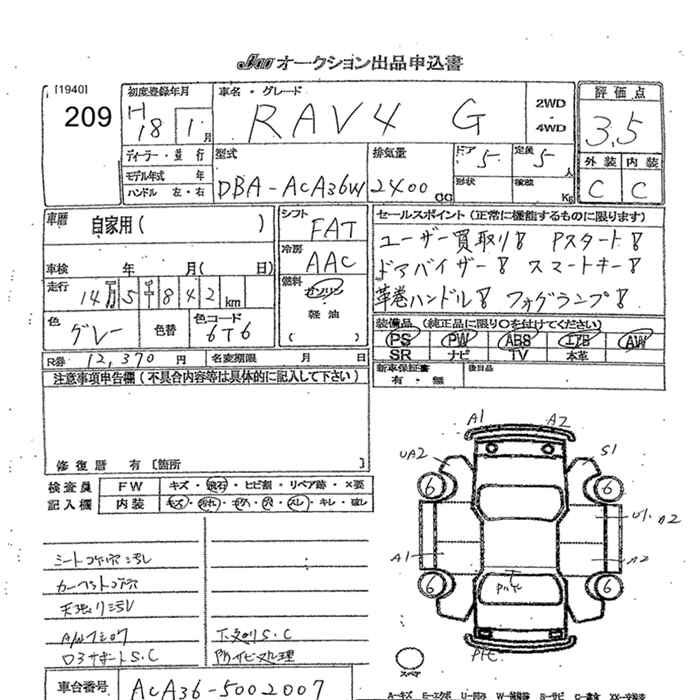 JAA オークション出品申込書
[1940]
209
初度登録年月
H 18 1 月
車名・グレード
RAV4 G
2WD
4WD
評価点
3.5
外装 内装
C C
ディーラー・並行
モデル年式 年
ハンドル 左・右
型式
DBA-ACA36W
排気量
2400 CC
ドア 5
定員 5 人
形状
積載 Kg
車歴 自家用( )
車検 年 月( 日)
走行 14万5千842 km
色 グレー
色替
色コード 6T6
シフト FAT
冷房 AAC
燃料 ガソリン
軽油
( )
セールスポイント(正常に機能するものに限ります)
ユーザー買取り! Pスタート!
ドアバイザー! スマートキー!
革巻ハンドル! フォグランプ!
装備品(純正品に限り○を付けてください)
PS PW ABS エアB AW
SR ナビ TV 本革
R券 12,370 円 名変期限 月 日
新車保証書 有・無
後日品
注意事項申告欄(不具合内容等は具体的に記入して下さい)
修復歴 有 [箇所 ]
検査員
記入欄
FW キズ・飛石・ヒビ割・リペア跡・×要
内装 キズ・汚れ・コゲ・穴・スレ・キレ・破レ
シートコゲ穴汚レ
カーペットコゲ穴
天張り汚レ
A/Wキズ
ロアサポートS.C
下廻りS.C
防サビ処理
車台番号 ACA36-5002007
A1 A2
UA2 S1
6 6
U1 A2
A1 A2
6 6
スペア
A-キズ E-エクボ U-凹ミ